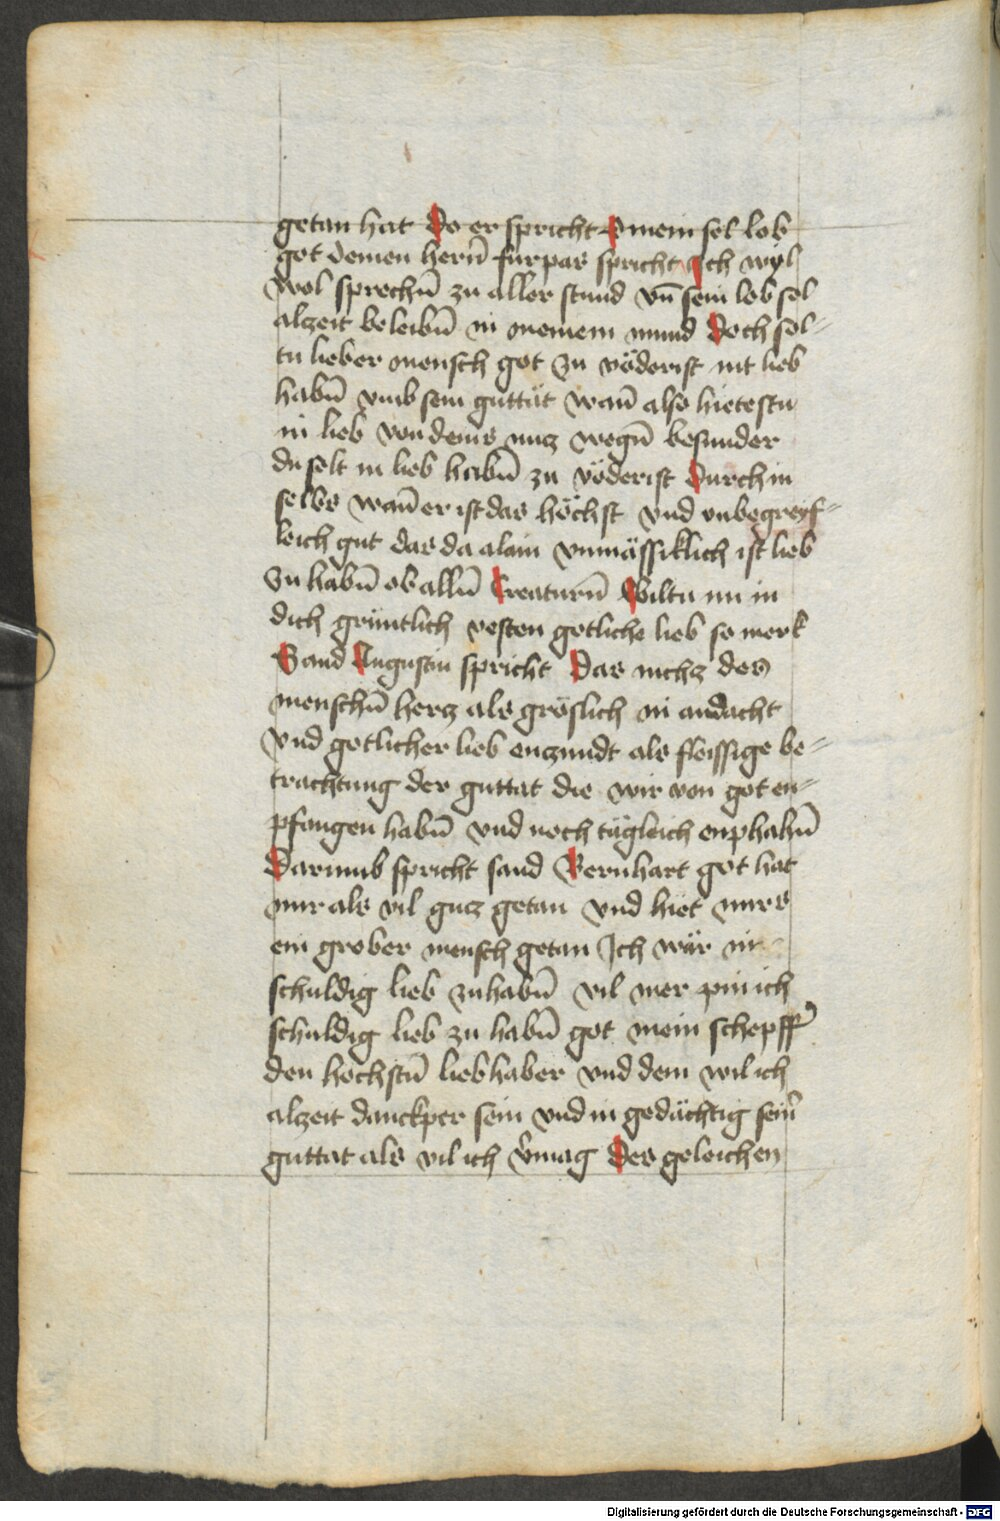 getan hat Do er spricht O mein sel lob
got deinen herñ furpas spricht Ich wyl
wol sprechn̄ zu aller stund vn̄ sein lob sol
alzeit beleibn̄ in meinem mund Doch sol-
tu lieber mensch got zu vöderist nit lieb
habn̄ vmb sein guttät wan̄ also hietestu
in lieb von deins nucz wegn̄ besunder
du solt in lieb habn̄ zu vöderist Durch in
selbs wan̄ er ist das höchst vnd vnbegreyf-
leich gut das da alain vnmässiklich ist lieb
zu habn̄ ob alln̄ Creaturn̄ Wiltu nu in
dich grüntlich vesten gotliche lieb so merk
Sand Augustin spricht Das nichcz des
menschn̄ hercz als gröslich in andacht
vnd gotlicher lieb enczundt als fleissige be-
trachtung der guttat die wir von got en-
pfangen habn̄ vnd noch tägleich enphahn̄
Darumb spricht sand Bernhart got hat
mir als vil gucz getan vnd hiet mirs
ein grober mensch getan Ich wär im
schuldig lieb zuhabn̄ vil mer pin ich
schuldig lieb zu habn̄ got mein schepff̄
den hochstn̄ liebhaber vnd dem wil ich
alzeit danckper sein vnd in gedächtig sein̄
guttat als vil ich v̄mag Des geleichen
Digitalisierung gefördert durch die Deutsche Forschungsgemeinschaft - DFG